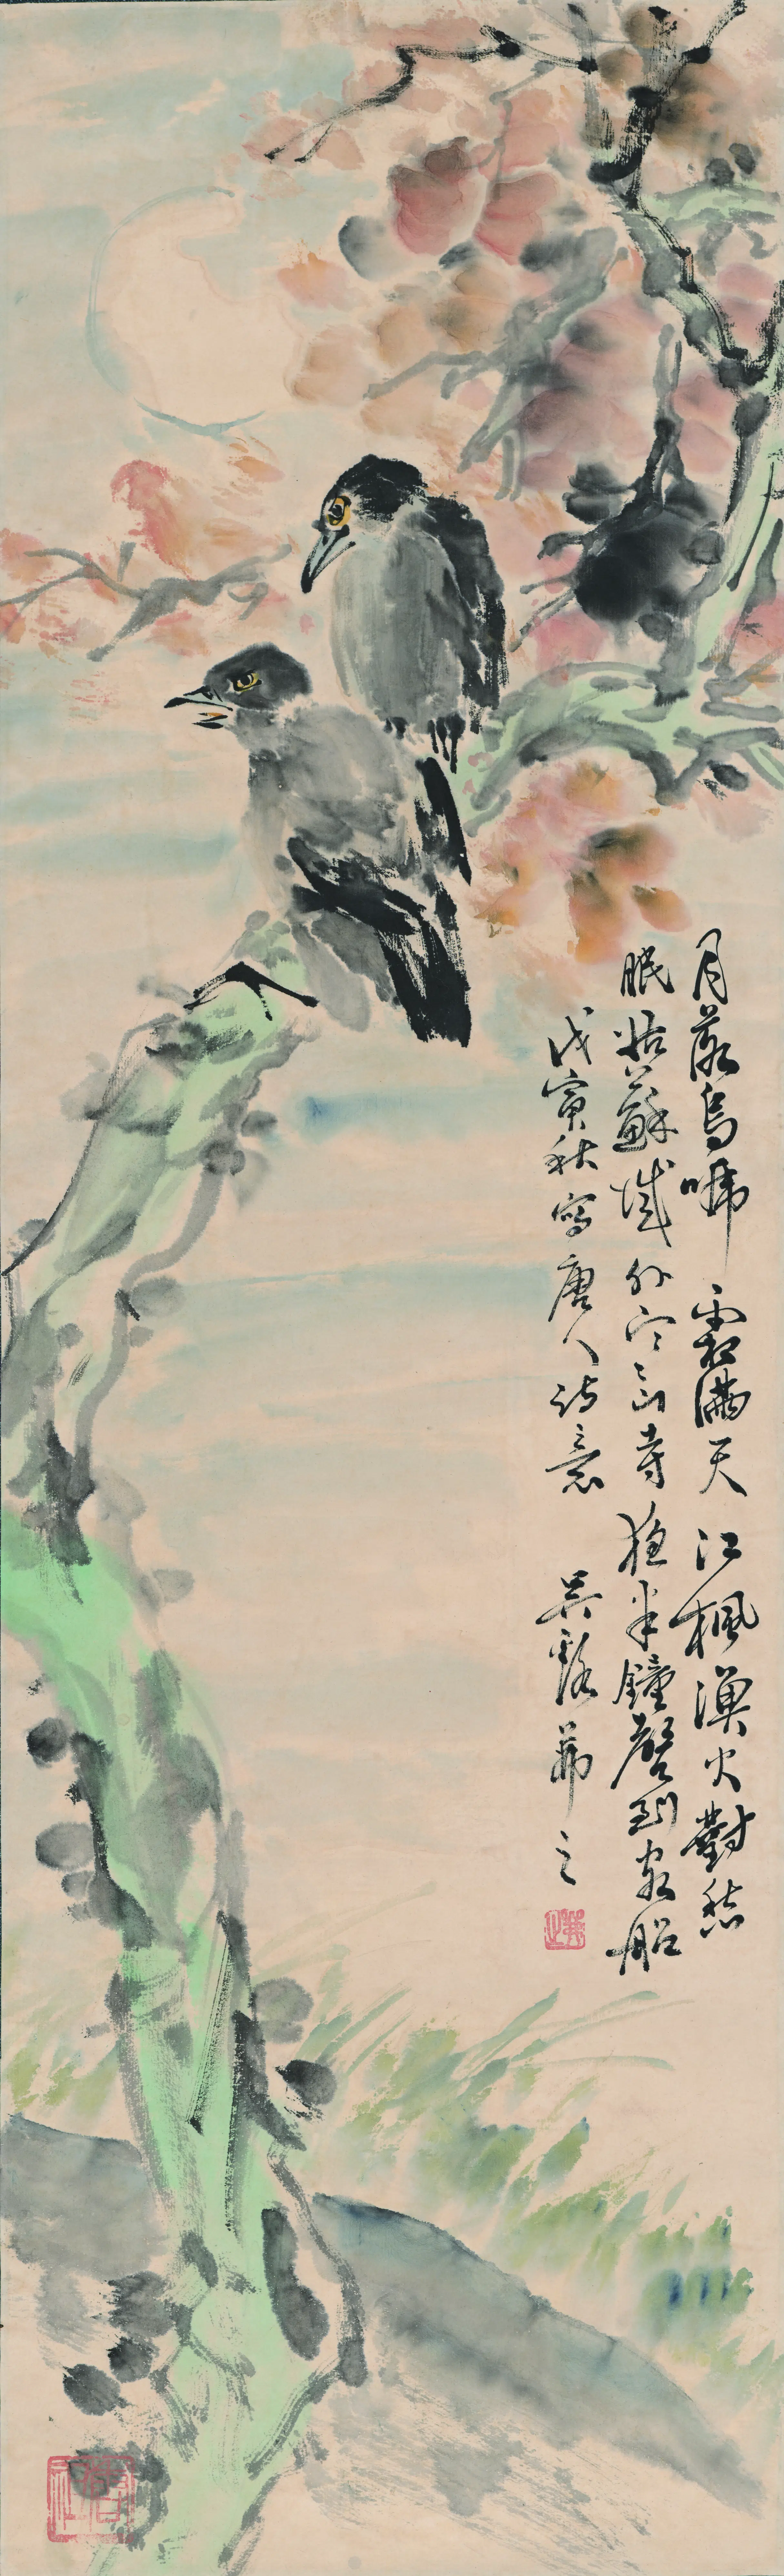 月落烏啼霜滿天江楓漁火對愁
眠姑蘇城外寒山寺夜半鐘聲到客船
戊寅秋寫唐人詩意 吳谿茀之
茀之